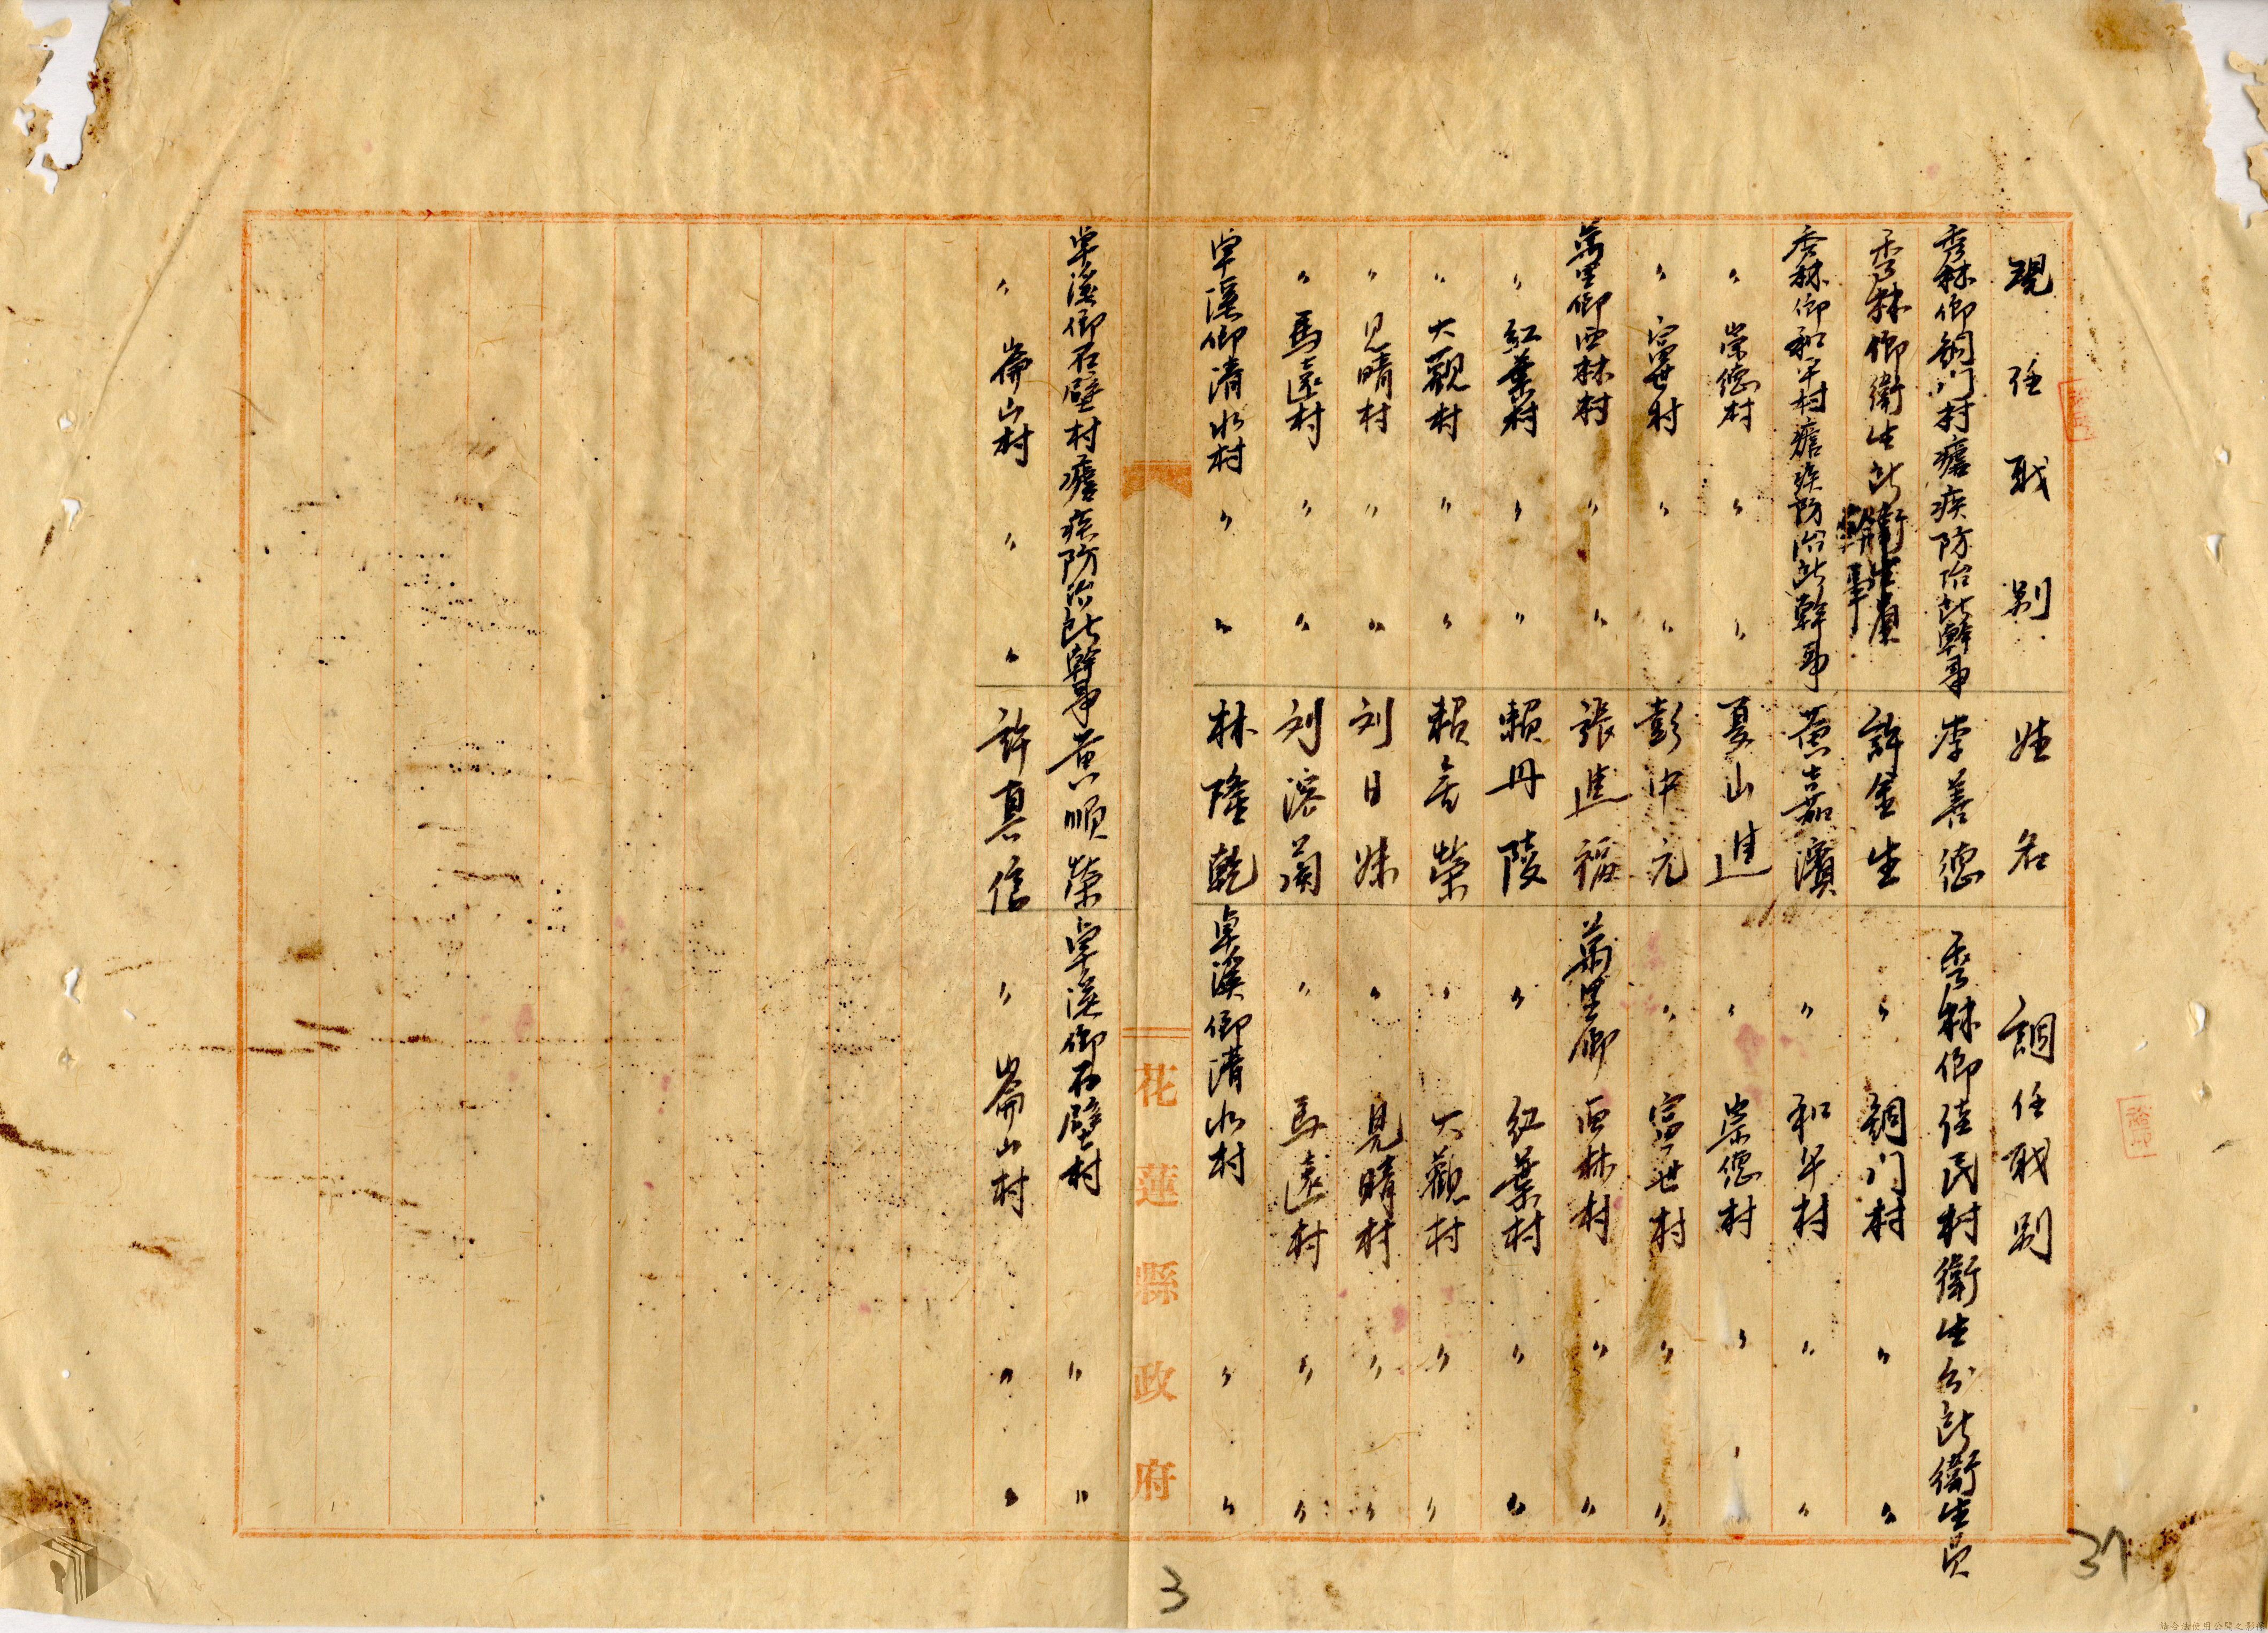 現任職別 姓名 調任職別
秀林鄉銅門村瘧疾防治所幹事 李善德 秀林鄉佳民村衛生分所衛生員
秀林鄉衛生所衛生員幹事 許金生 〃 銅門村 〃 〃
秀林鄉和平村瘧疾防治所幹事 黃嘉濱 〃 和平村 〃 〃
〃 崇德村 〃 〃 夏山進 〃 崇德村 〃 〃
〃 富世村 〃 〃 彭中元 〃 富世村 〃 〃
萬里鄉西林村 〃 〃 張進福 萬里鄉西林村 〃 〃
〃 紅葉村 〃 〃 賴丹陵 〃 紅葉村 〃 〃
〃 大觀村 〃 〃 賴吉榮 〃 大觀村 〃 〃
〃 見晴村 〃 〃 刘日妹 〃 見晴村 〃 〃
〃 馬遠村 〃 〃 刘溶蘭 〃 馬遠村 〃 〃
卓溪鄉清水村 〃 〃 林隆乾 卓溪鄉清水村 〃 〃
花蓮縣政府
卓溪鄉石壁村瘧疾防治所幹事 黃順榮 卓溪鄉石壁村 〃 〃
〃 崙山村 〃 〃 許真信 〃 崙山村 〃 〃
37
3
請合法使用公開之影像